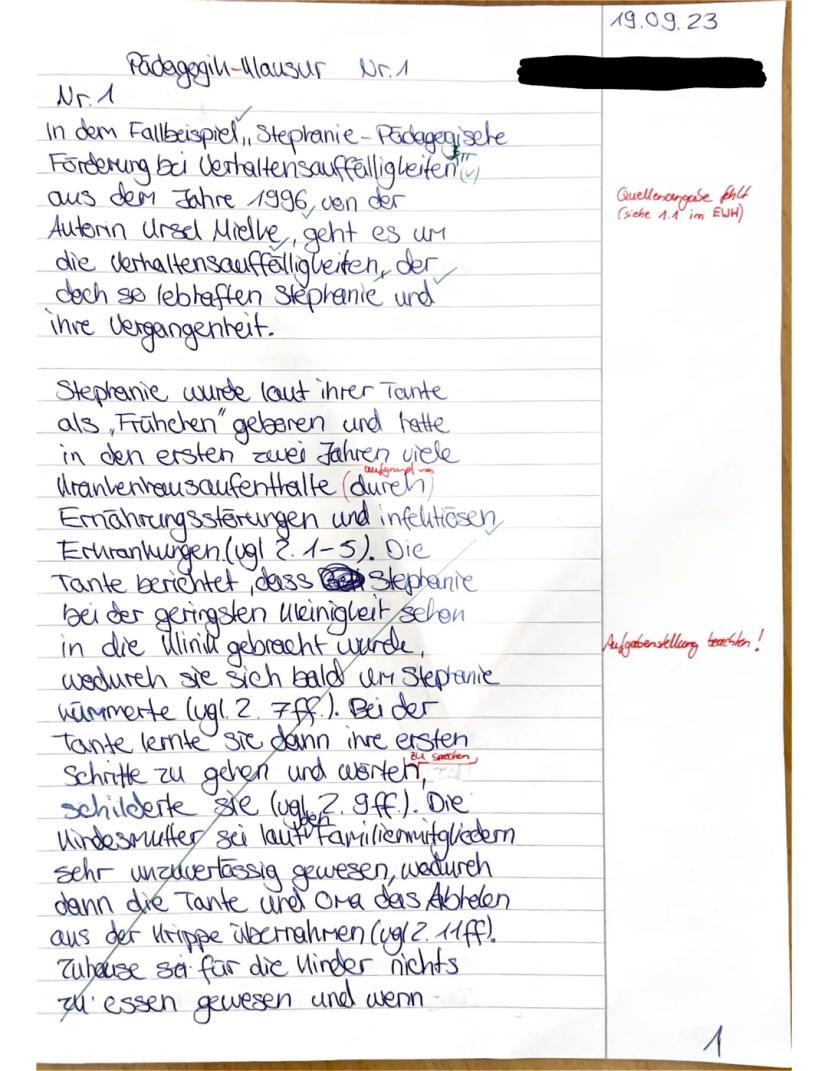 19.09.23
Pädagogik-Klausur Nr. 1
Nr. 1
In dem Fallbeispiel „Stephanie - Pädagogische
Förderung bei Verhaltensauffälligkeiten"
aus dem Jahre 1996, von der
Quellenangabe fehlt
(siehe 1.1 im EWH)
Autorin Ursel Mielke, geht es um
die Verhaltensauffälligkeiten, der
doch so lebhaften Stephanie und
ihre Vergangenheit.
Stephanie wurde laut ihrer Tante
als „Frühchen" geboren und hatte
in den ersten zwei Jahren viele
aufgrund von
Krankenhausaufenthalte (durch)
Ernährungsstörungen und infektiösen
Erkrankungen (vgl Z. 1-5). Die
Tante berichtet, dass Stephanie
bei der geringsten Kleinigkeit schon
in die Klinik gebracht wurde,
Aufgabenstellung beachten!
wodurch sie sich bald um Stephanie
kümmerte (vgl. Z. 7ff.). Bei der
Tante lernte sie dann ihre ersten
zu sprechen
Schritte zu gehen und worten,
schilderte sie (vgl. Z. 9ff.). Die
den
Kindesmutter sei laut Familienmitgliedern
sehr unzuverlässig gewesen, wodurch
dann die Tante und Oma das Abholen
aus der Krippe übernahmen (vgl Z. 11ff).
Zuhause sei für die Kinder nichts
zu essen gewesen und wenn
1